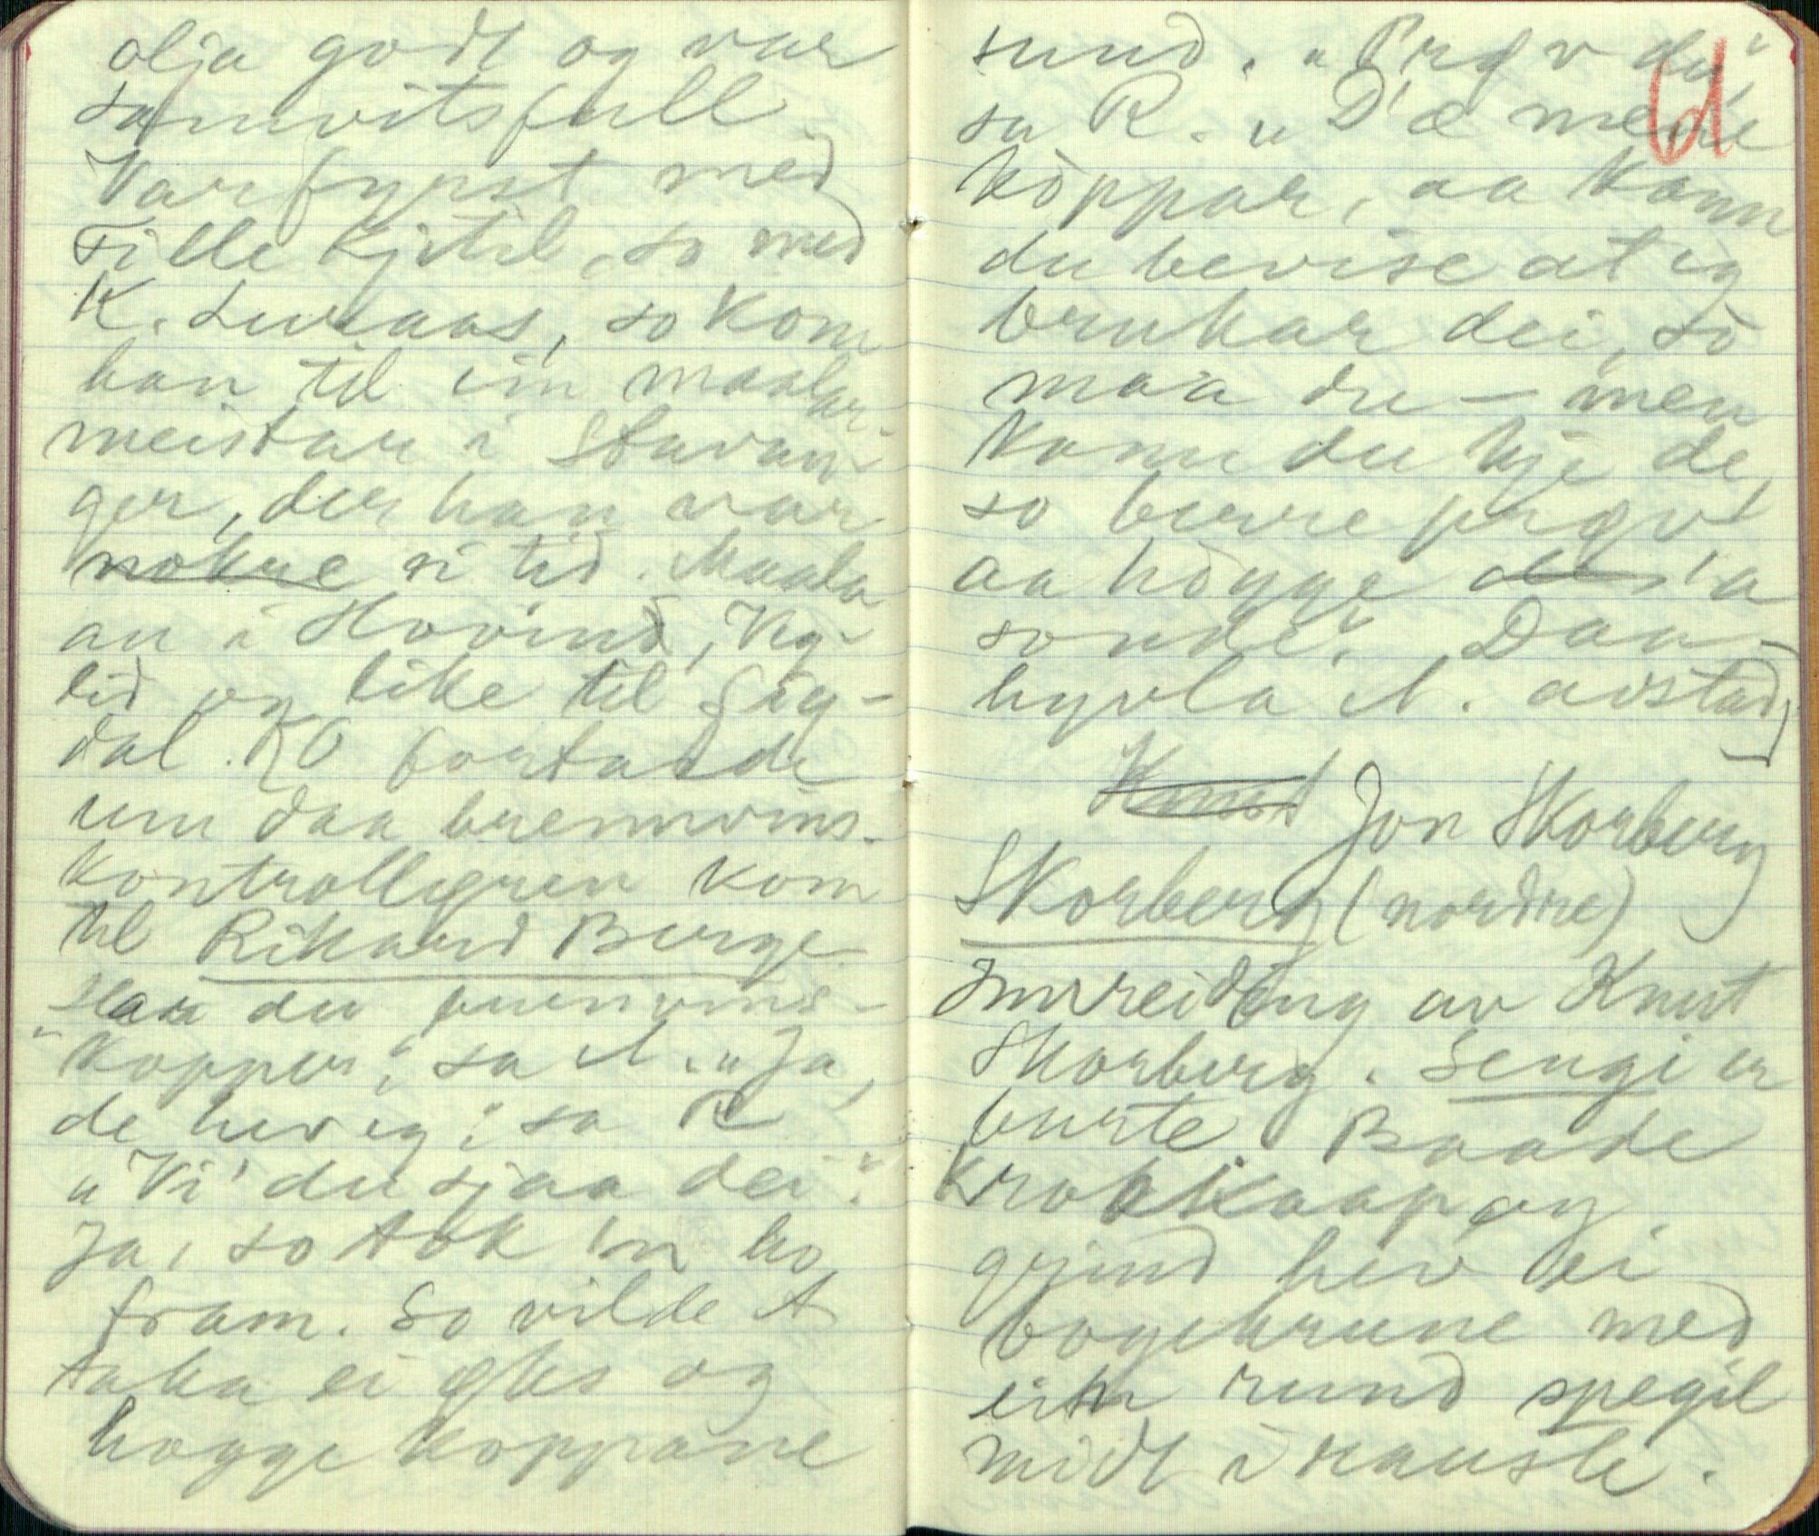 olja godt og var
samvitsfull.
Var fyrst med
Tille Kjetil, so med
K. Luraas, so kom
han til ein maalar-
meistar i Stavan-
ger, der han var
nokre ei tid. Maala
au i Hovind, Veg-
lid og like til Sig-
dal. RO fortalde
um daa brennvins-
kontrolløren kom
til Rikard Berge
Har du
"koppar", sa A. "Ja,
de hev eg", sa R
"Vi' du sjaa dei".
Ja, so tok 'n ho
fram. So vilde A
taka ei øks og
hogge koppane
sund. "Prøv du",
sa R. "D'æ mine
köppar, aa kann
du bevise at eg
brukar dei, so
maa du — men
kann du kje de,
so berre prøv
aa högge 'a
sonde". Daa
A. avstad
Knut Jon Skorberg
Skorberg (nordre)
Innreiding av Knut
Skorberg. Sengi er
burte Baade
kroskaap og
grind hev ei
bogekrune med
ein rund spegil
midt i rauste.
d